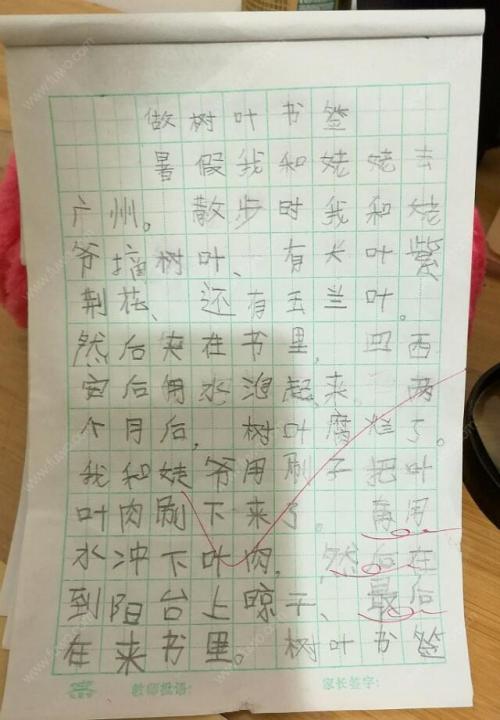 做树叶书签
暑假我和姥姥去
广州。散步时我和姥
爷摘树叶、有大叶紫
荆花、还有玉兰叶。
然后夹在书里,回西
安后用水泡起来 两
个月后,树叶腐烂了。
我和姥爷用刷子把叶
叶肉刷下来了。再用
水冲下叶肉,然后在
到阳台上晾干、最后
在来书里。树叶书签
教师批语: 家长签字: